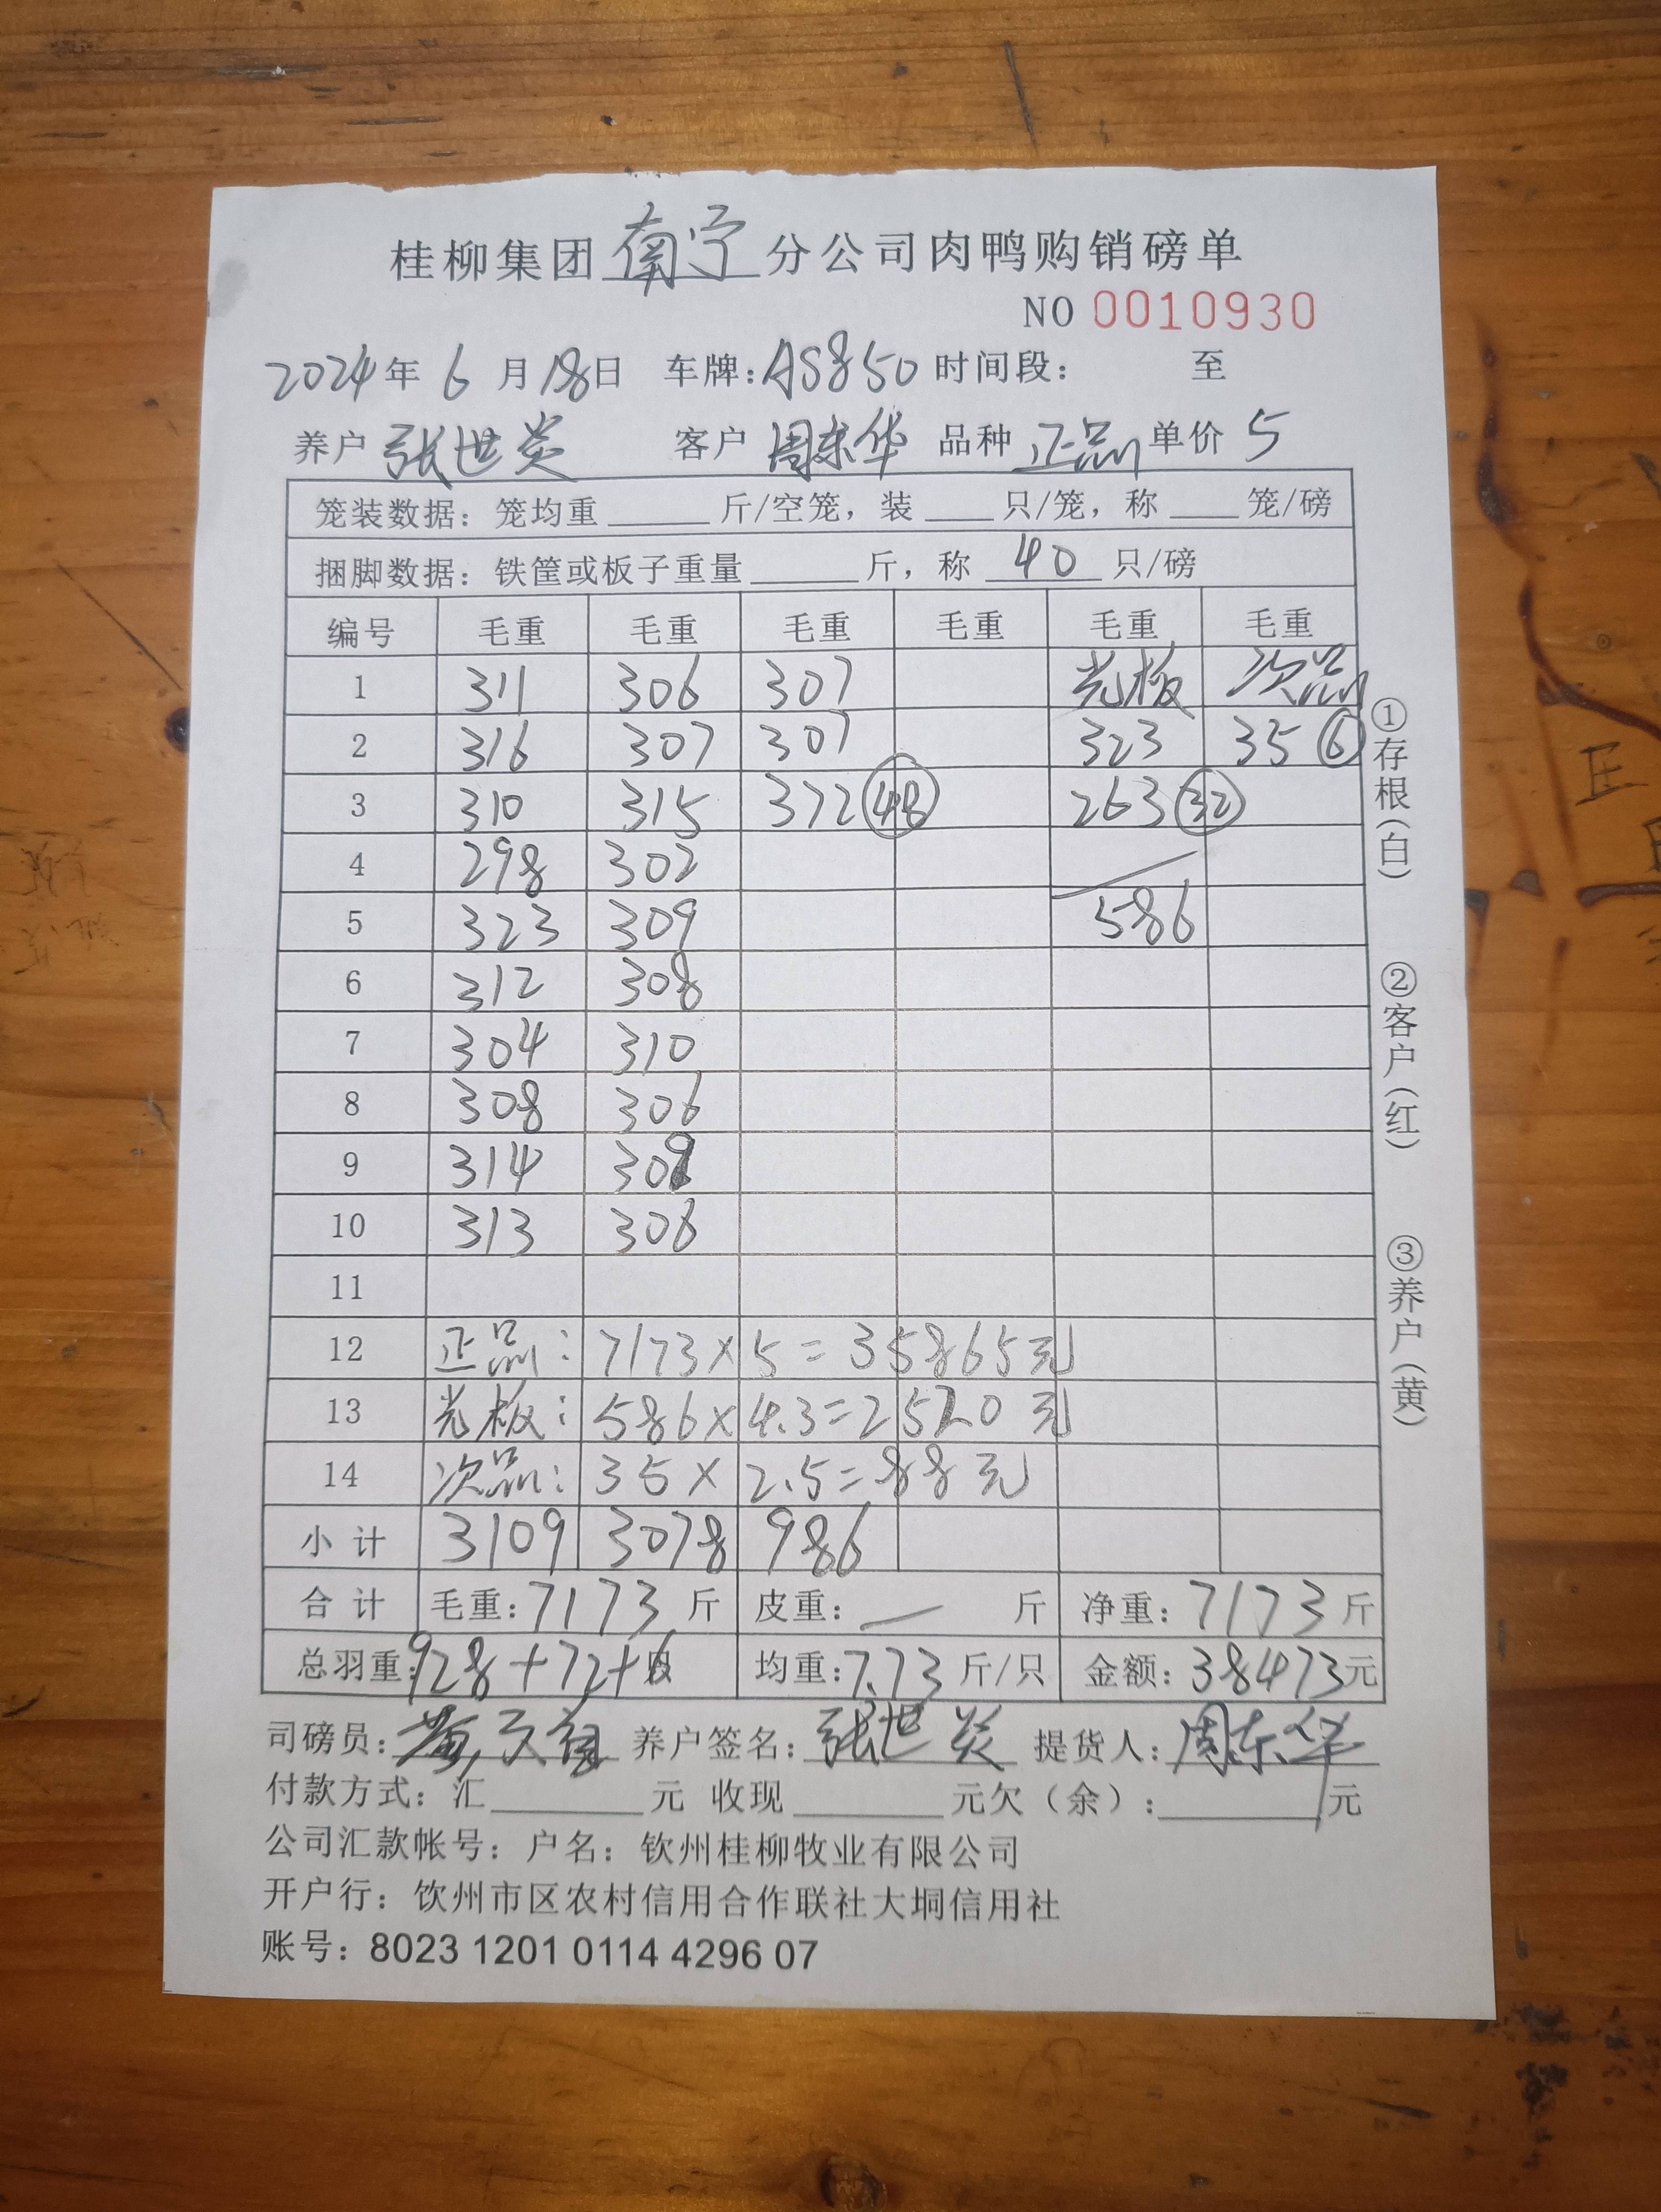 桂柳集团南宁分公司肉鸭购销磅单
NO 0010930
2024年 6 月 18日 车牌：AS850 时间段： 至
养户 张世炎 客户 周东华 品种 正品 单价 5
笼装数据：笼均重______斤/空笼，装____只/笼，称____笼/磅
捆脚数据：铁筐或板子重量______斤，称 40 只/磅
编号 毛重 毛重 毛重 毛重 毛重 毛重
1 311 306 307 光板 次品
2 316 307 307 323 35 ⑥
3 310 315 372 ㊽ 263 ㉜
4 298 302
5 323 309 586
6 312 308
7 304 310
8 308 306
9 314 309
10 313 306
11
12 正品：7173×5=35865元
13 光板：586×4.3=2520元
14 次品：35×2.5=88元
小计 3109 3078 986
合计 毛重：7173 斤 皮重：— 斤 净重：7173 斤
总羽重：928+72+6 均重：7.73 斤/只 金额：38473元
司磅员： 养户签名：张世炎 提货人：周东华
付款方式：汇________元 收现________元欠（余）：________元
公司汇款帐号：户名：钦州桂柳牧业有限公司
开户行：饮州市区农村信用合作联社大垌信用社
账号：8023 1201 0114 4296 07
①存根（白） ②客户（红） ③养户（黄）